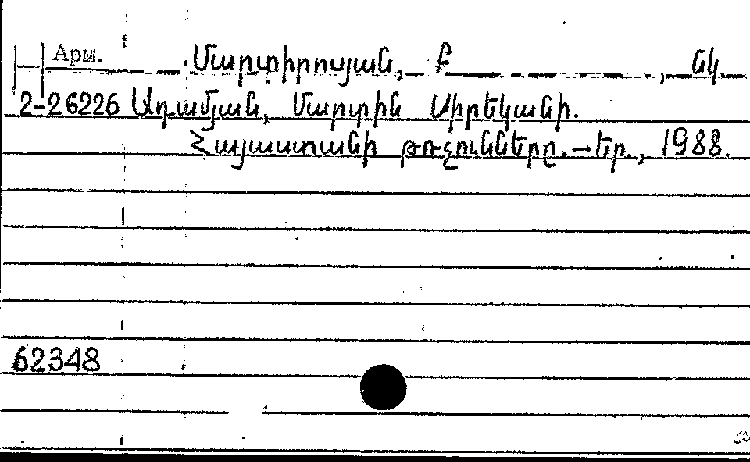 Арм. Մարտիրոսյան, Բ , նկ.
2-26226 Ադամյան, Մարտին Սիրեկանի.
Հայաստանի թռչունները.–Եր., 1988.
62348